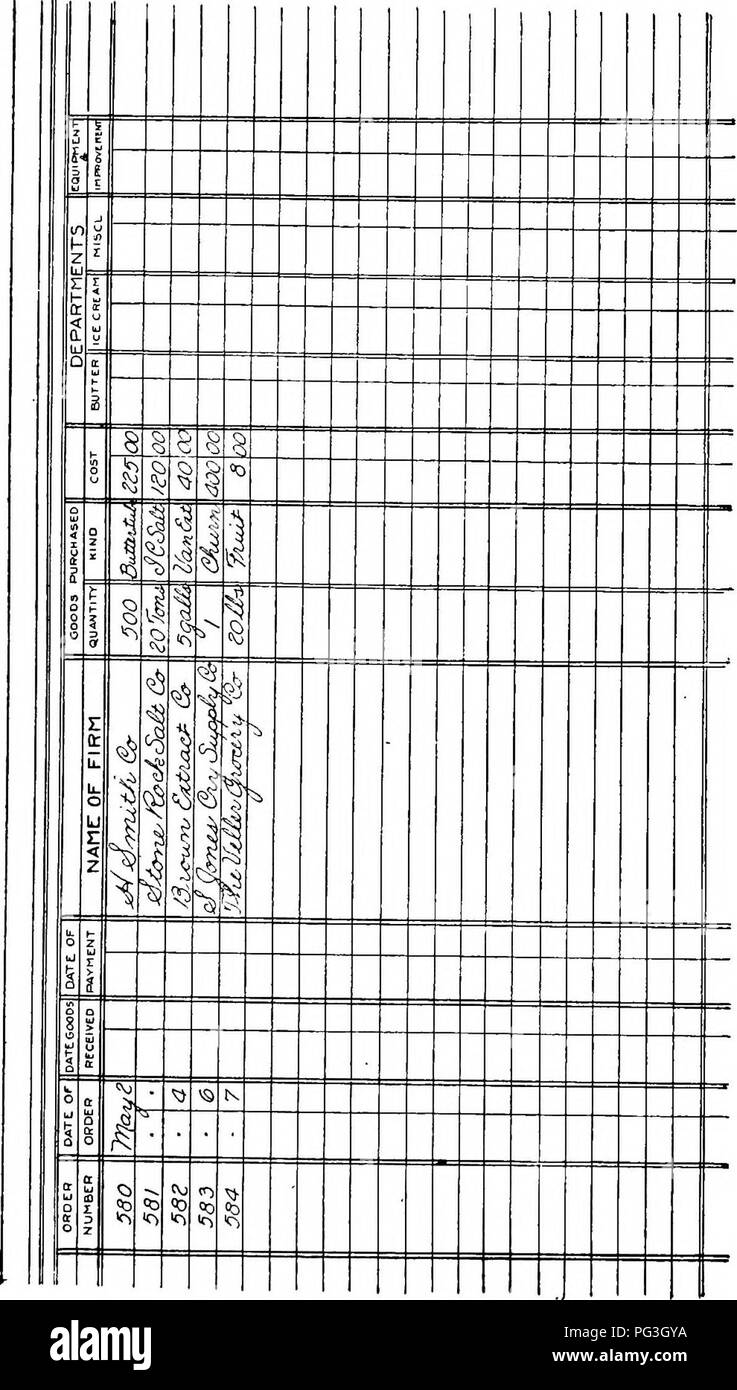 ORDER NUMBER DATE OF ORDER DATE GOODS RECEIVED DATE OF PAYMENT NAME OF FIRM GOODS PURCHASED QUANTITY KIND COST DEPARTMENTS BUTTER ICE CREAM MISCL EQUIPMENT & IMPROVEMENT
580 May 2 H Smith Co 500 Buttertubs 225 00
581 . . Stone Rock Salt Co 20 Tons I C Salt 120 00
582 . 4 Brown Extract Co 5 galls Van Ext 40 00
583 . 6 S Jones Cry Supply Co 1 Churn 400 00
584 . 7 The Veller Grocery Co 20 lbs Fruit 8 00
alamy
Image ID: PG3GYA
www.alamy.com